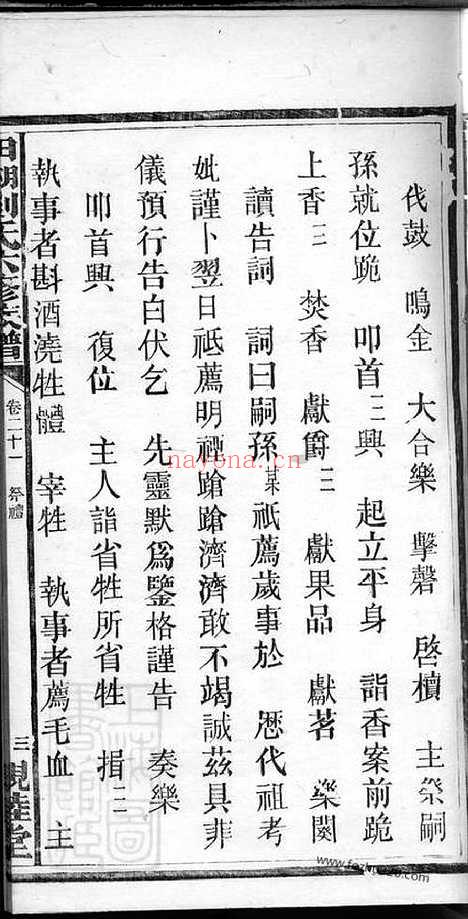 伐鼓　鳴金　大合樂　擊磬　啓櫝　主祭嗣
孫就位跪　叩首三　興　起立平身　詣香案前跪
上香三　焚香　獻爵三　獻果品　獻茗　樂闋
讀告詞　詞曰嗣孫某某祇薦歲事於　歷代祖考
妣謹卜翌日祗薦明禋蹌蹌濟濟敢不竭誠茲具菲
儀預行告白伏乞　先靈默爲鑒格謹告　奏樂
叩首興　復位　主人詣省牲所省牲　揖三
執事者斟酒澆牲體　宰牲　執事者薦毛血　主
劉氏六修族譜　卷二十一　祭禮　三　親睦堂
nayona.cn